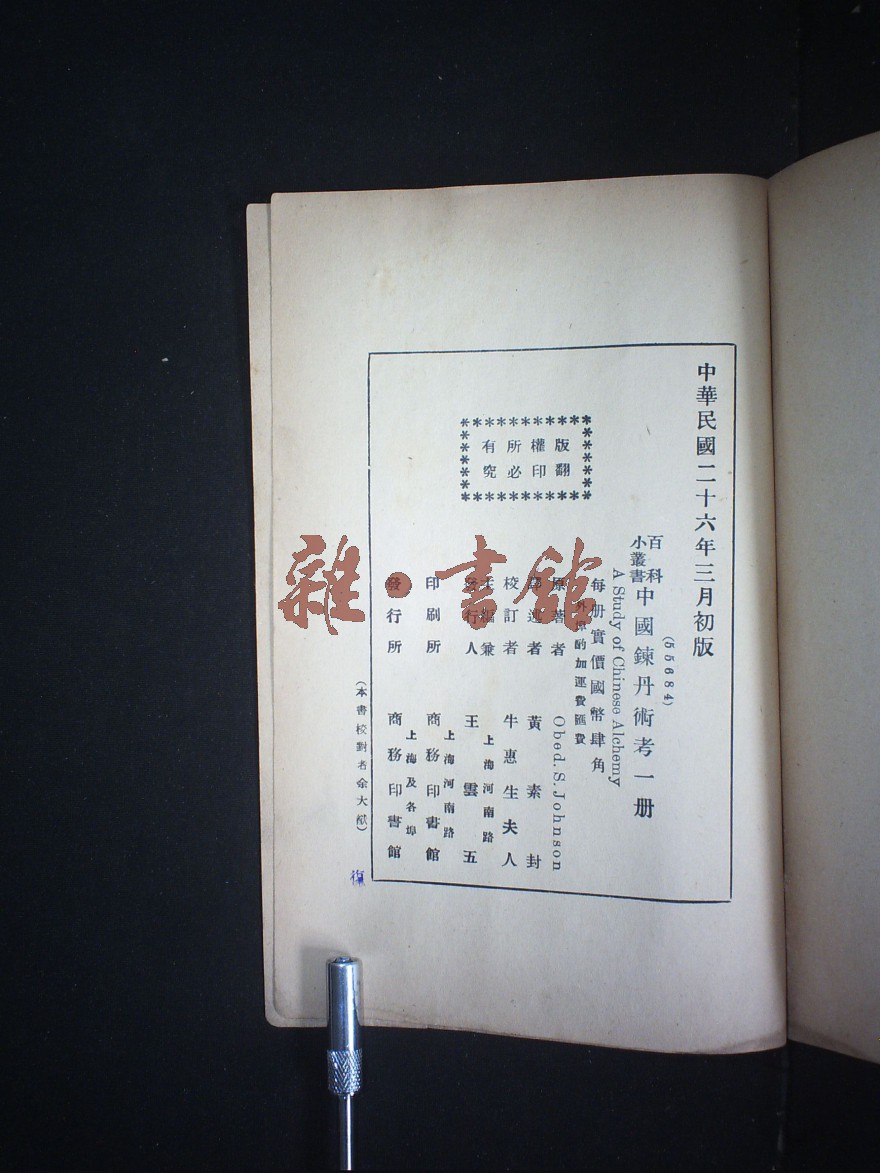 中華民國二十六年三月初版
(55684)
百科小叢書
中國鍊丹術考一册
A Study of Chinese Alchemy
每册實價國幣肆角
外埠酌加運費匯費
原著者 Obed. S. Johnson
黃素封
校訂者 牛惠生夫人
發行人 王雲五
上海河南路
印刷所 商務印書館
上海河南路
發行所 商務印書館
上海及各埠
版權所有
翻印必究
(本書校對者余大猷)
雜·書館